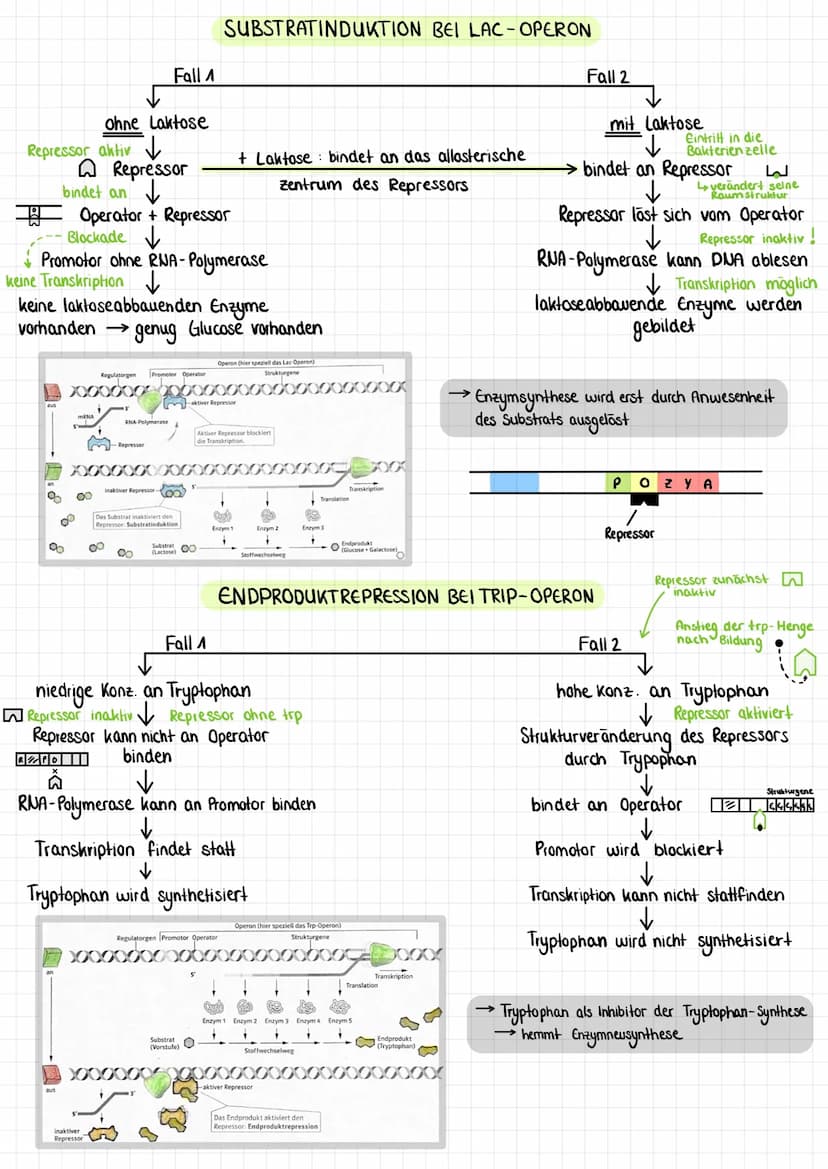 SUBSTRATINDUKTION BEI LAC-OPERON
Fall 1
ohne Laktose
Repressor aktiv
Repressor
bindet an
Operator + Repressor
Blockade
Promotor ohne RNA-Polymerase
keine Transkription
keine laktoseabbauenden Enzyme
vorhanden → genug Glucose vorhanden
+ Laktose : bindet an das allosterische
zentrum des Repressors
Fall 2
mit Laktose
Eintritt in die
Bakterienzelle
bindet an Repressor
↳ verändert seine
Raumstruktur
Repressor löst sich vom Operator
Repressor inaktiv !
RNA-Polymerase kann DNA ablesen
Transkription möglich
laktoseabbauende Enzyme werden
gebildet
Operon (hier speziell das Lac-Operon)
Regulatorgen Promotor Operator Strukturgene
aus
mRNA
3'
5'
RNA-Polymerase
aktiver Repressor
Repressor
Aktiver Repressor blockiert
die Transkription.
an
inaktiver Repressor
5'
Transkription
Translation
Das Substrat inaktiviert den
Repressor: Substratinduktion
Enzym 1 Enzym 2 Enzym 3
Substrat
(Lactose)
Stoffwechselweg
Endprodukt
(Glucose + Galactose)
→ Enzymsynthese wird erst durch Anwesenheit
des Substrats ausgelöst
P O Z Y A
Repressor
ENDPRODUKTREPRESSION BEI TRIP-OPERON
Repressor zunächst
inaktiv
Anstieg der trp-Menge
nach Bildung
Fall 1
niedrige Konz. an Tryptophan
Repressor inaktiv
Repressor ohne trp
Repressor kann nicht an Operator
binden
RNA-Polymerase kann an Promotor binden
Transkription findet statt
Tryptophan wird synthetisiert
Fall 2
hohe Konz. an Tryptophan
Repressor aktiviert
Strukturveränderung des Repressors
durch Trypophan
bindet an Operator
Strukturgene
Promotor wird blockiert
Transkription kann nicht stattfinden
Tryptophan wird nicht synthetisiert
Operon (hier speziell das Trp-Operon)
Regulatorgen Promotor Operator Strukturgene
an
5'
Transkription
Translation
Enzym 1 Enzym 2 Enzym 3 Enzym 4 Enzym 5
Substrat
(Vorstufe)
Stoffwechselweg
Endprodukt
(Tryptophan)
aus
3'
5'
aktiver Repressor
inaktiver
Repressor
Das Endprodukt aktiviert den
Repressor: Endproduktrepression
→ Tryptophan als Inhibitor der Tryptophan-Synthese
→ hemmt Enzymneusynthese